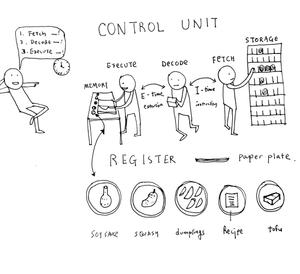 CONTROL UNIT
1. Fetch
2. Decode
3. Execute
STORAGE
FETCH
DECODE
EXECUTE
MEMORY
E-time
execution
I-time
instruction
REGISTER
paper plate.
SOY SAUCE
SQUASH
dumplings
Recipe
tofu